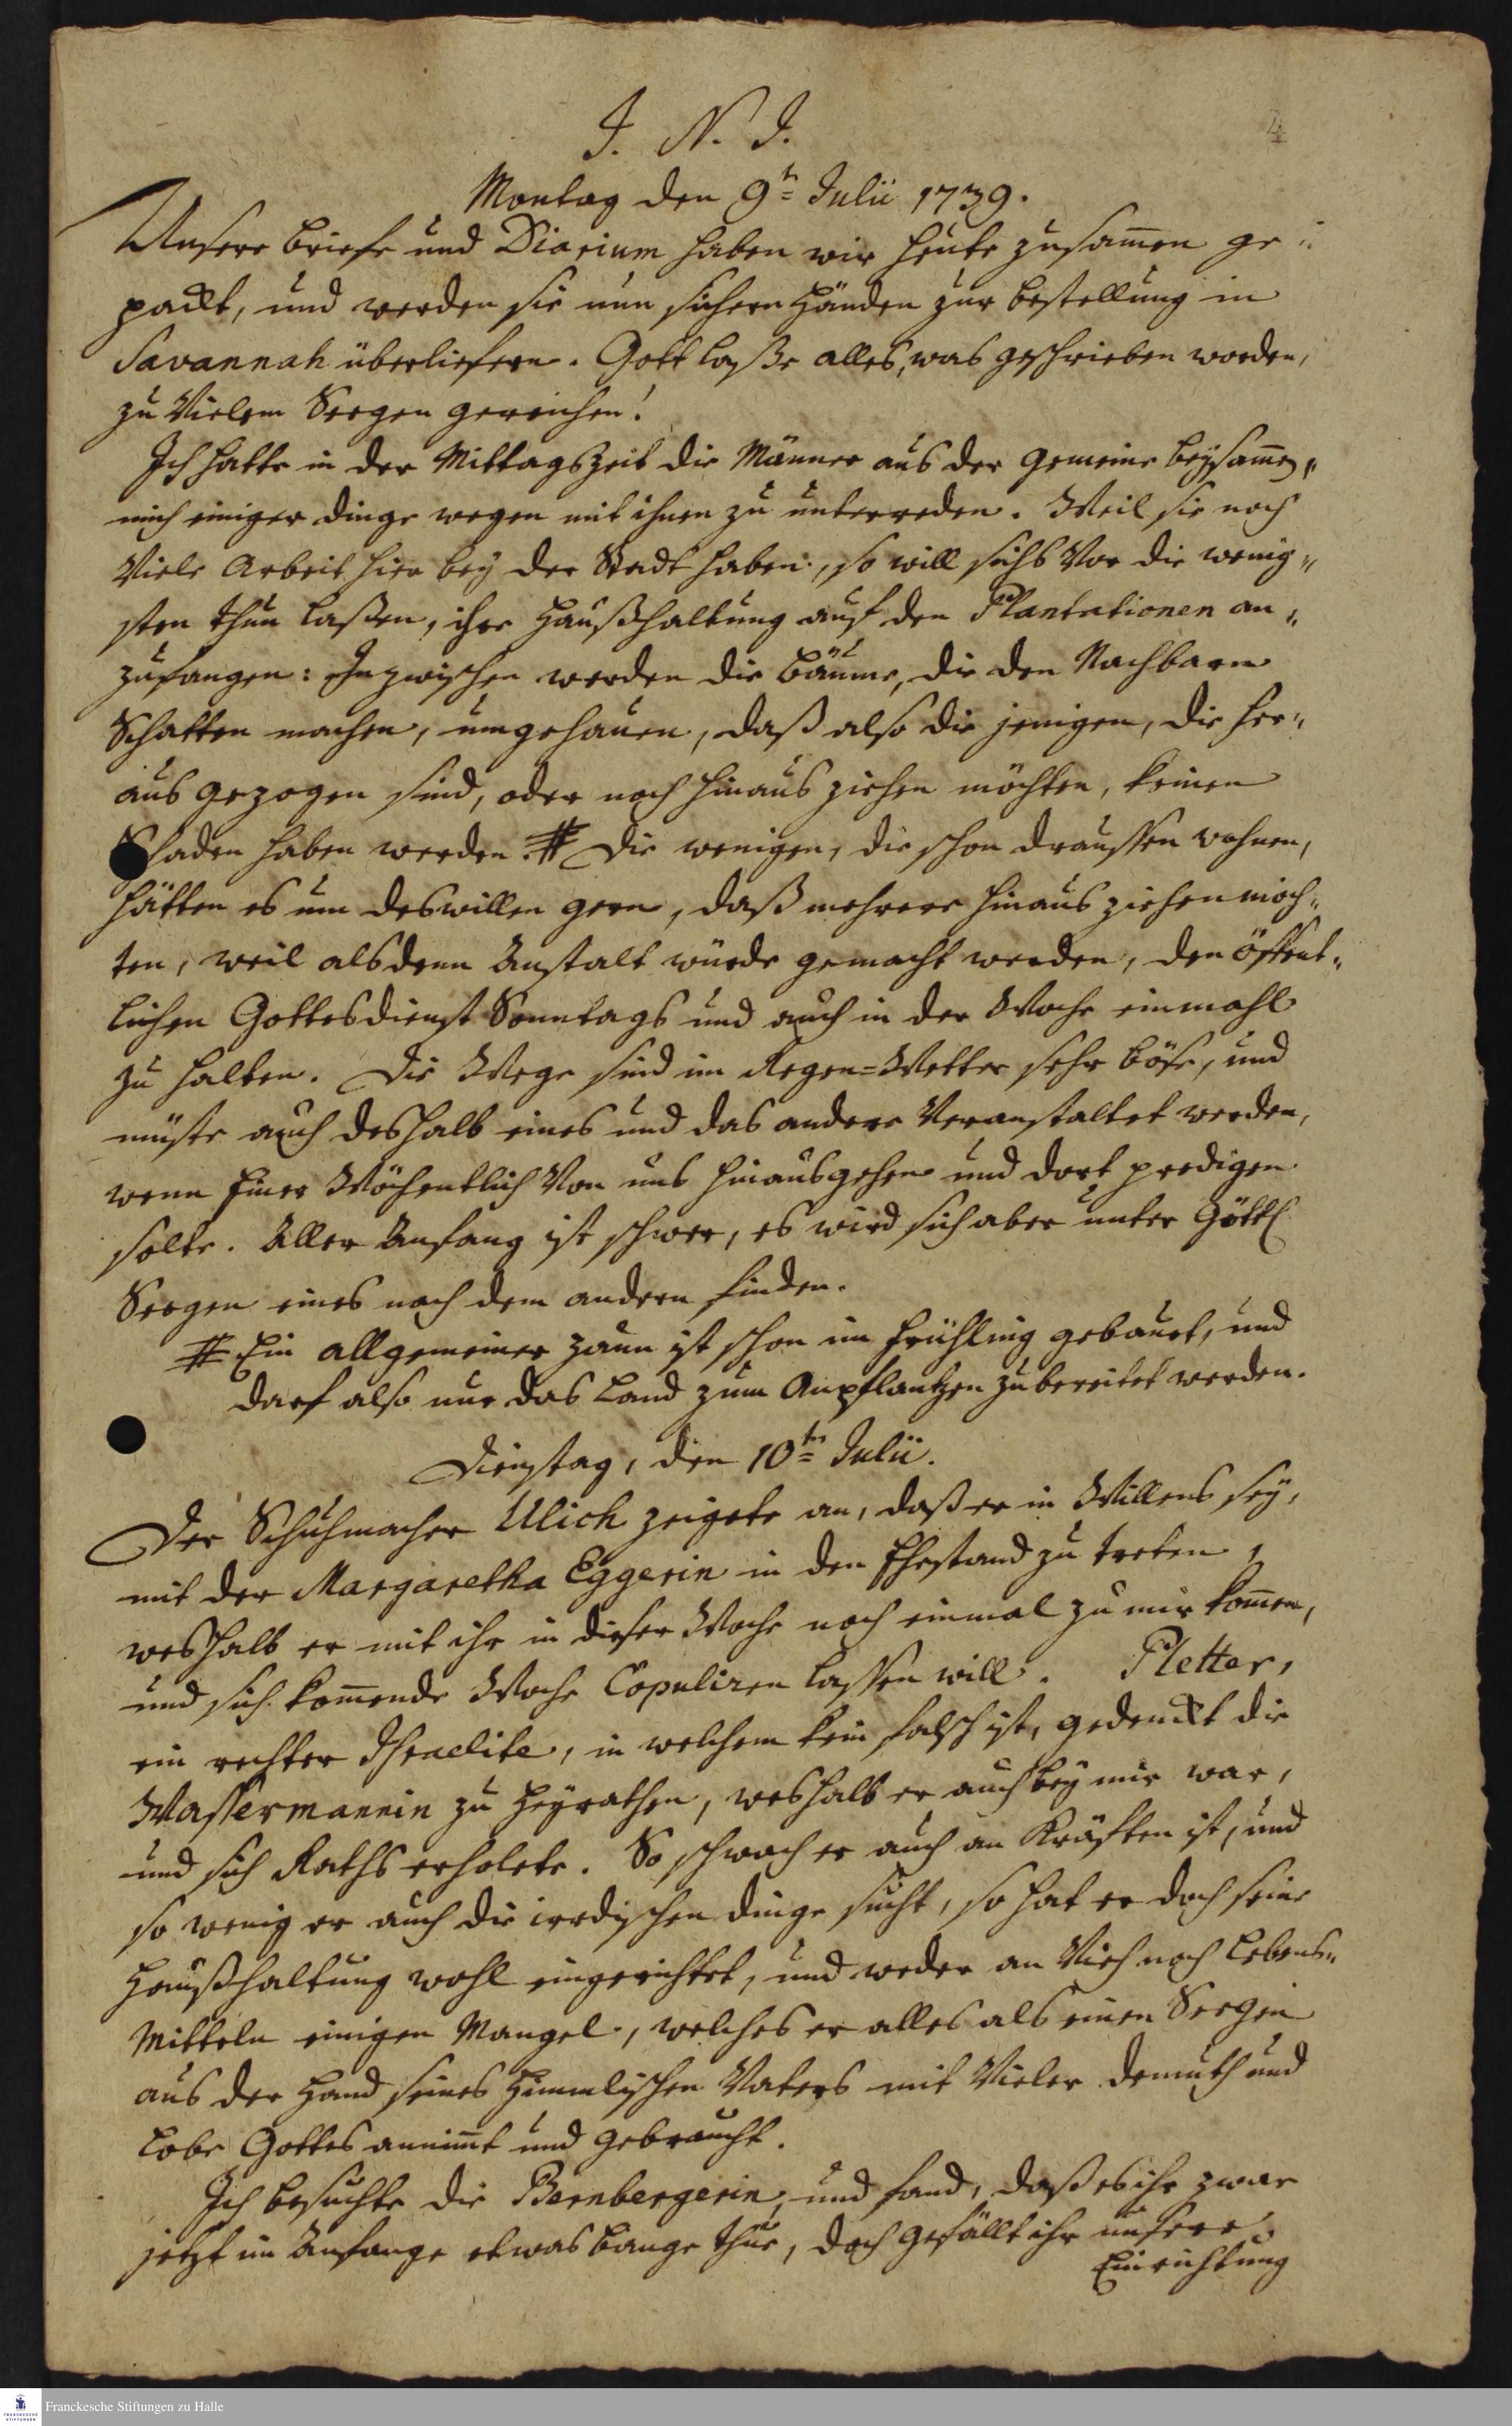 4
J. N. J.
Montag den 9t= Julii 1739.
Unsere Briefe und Diarium haben wir heute zusam̄en ge=
packt, und werden sie nun sichern Händen zur bestellung in
Savannah überliefern. Gott laße alles, was geschrieben worden,
zu Vielem Seegen gereichen!
Ich hatte in der Mittagszeit die Männer aus der Gemeine beysam̄en,
mich einiger dinge wegen mit ihnen zu unterreden. Weil sie noch
Viele Arbeit hier bey der Stadt haben, so will sichs Vor die wenig=
sten thun laßen, ihre Haußhaltung auf den Plantationen an=
zufangen: Inzwischen werden die Bäume, die den Nachbarn
Schatten machen, umgehauen, daß also die jenigen, die her=
aus gezogen sind, oder noch hinaus ziehen möchten, keinen
Schaden haben werden. # Die wenigen, die schon draussen wohnen,
hätten es um deswillen gern, daß mehrere hinaus ziehen möch=
ten, weil alsdenn Anstalt würde gemacht werden, den öffent=
lichen Gottesdienst Sonntags und auch in der Woche einmahl
zu halten. Die Wege sind im Regen=Wetter sehr böse, und
müste auch deshalb eines und das andere Veranstaltet werden,
wenn Einer Wöchentlich Von uns hinausgehen und dort predigen
solte. Aller Anfang ist schwer, es wird sich aber unter Göttl.
Seegen eines nach dem andern finden.
# Ein allgemeiner Zaun ist schon im Frühling gebauet, und
darf also nur das Land zum Anpflantzen zubereitet werden.
Dienstag, den 10t= Julii.
Der Schuhmacher Ulich zeigete an, daß er in Willens sey,
mit der Margaretha Eggerin in den Ehestand zu treten,
weshalb er mit ihr in dieser Woche noch einmal zu mir kom̄en,
und sich kom̄ende Woche Copuliren lassen will. Pletter,
ein rechter Israelite, in welchem kein falsch ist, gedenckt die
Wassermannin zu heyrathen, weshalb er auch bey mir war,
und sich Raths erholete. So schwach er auch an Kräften ist, und
so wenig er auch die irrdischen dinge sucht, so hat er doch seine
Haußhaltung wohl eingerichtet, und weder an Vieh noch Lebens=
Mitteln einigen Mangel, welches er alles als einen Seegen
aus der Hand seines Himmlischen Vaters mit Vieler demuth und
Lobe Gottes annim̄t und gebraucht.
Ich besuchte die Bernbergerin, und fand, daß es ihr zwar
jetzt im Anfange etwas bange thue, doch gefällt ihr unsere
Einrichtung
Franckesche Stiftungen zu Halle
FRANCKESCHE
STIFTUNGEN